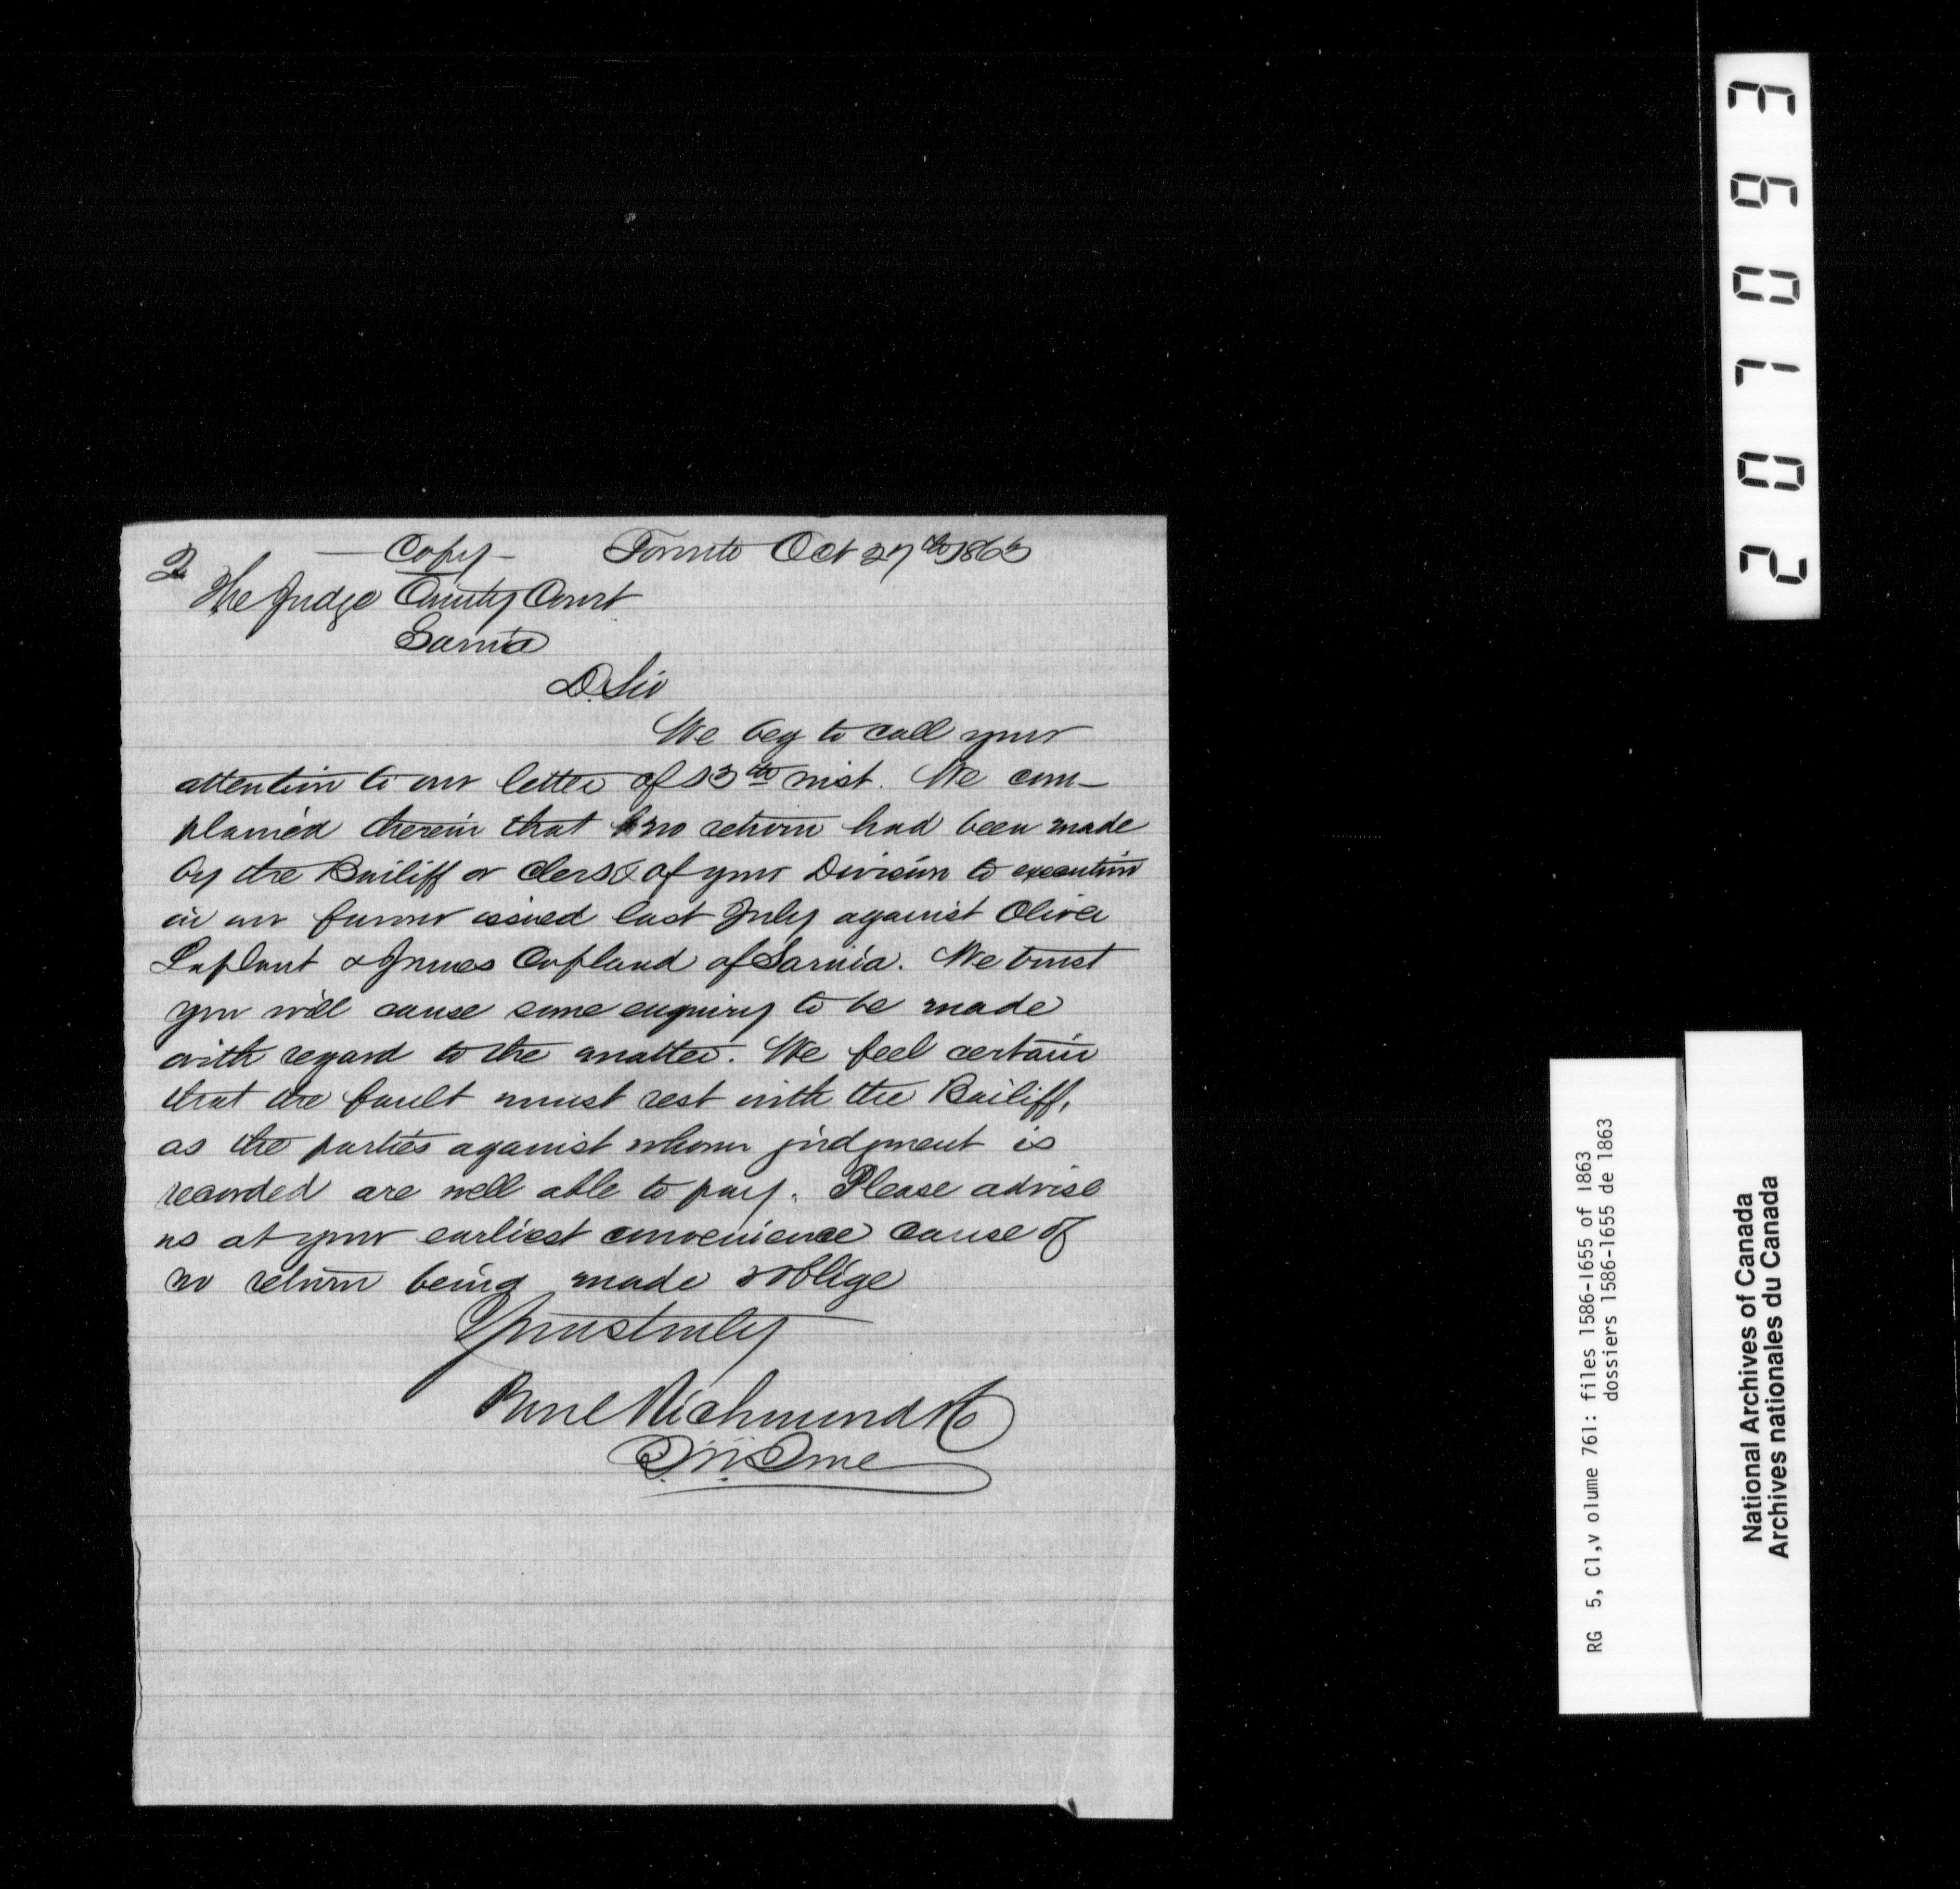 2
— Copy — Toronto Oct 27th 1863
The Judge County Court
Sarnia
D. Sir
We beg to call your
attention to our letter of 13th inst. We com-
plained therein that no return had been made
by the Bailiff or Clerk of your Division to execution
in our favor issued last July against Oliver
Laplant & James Copland of Sarnia. We trust
you will cause some enquiry to be made
with regard to the matter. We feel certain
that the fault must rest with the Bailiff,
as the parties against whom judgment is
recorded are well able to pay. Please advise
us at your earliest convenience cause of
no return being made & oblige
Yours truly
Richmond & Co
207093
RG 5, C1,v olume 761: files 1586-1655 of 1863
dossiers 1586-1655 de 1863
National Archives of Canada
Archives nationales du Canada